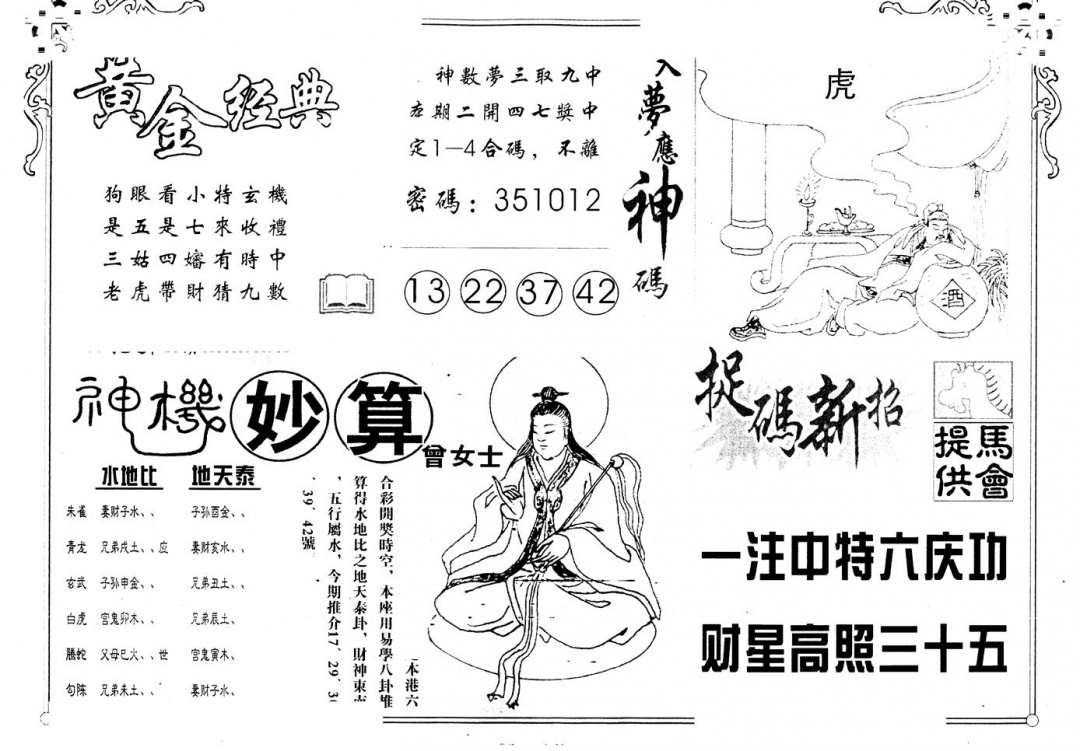 黃金經典
狗眼看小特玄機
是五是七來收禮
三姑四嬸有時中
老虎帶財猜九數
神數夢三取九中
期二開四七獎中
定1—4合碼，不離
密碼：351012
13 22 37 42
入夢應神碼
虎
酒
神機妙算
曾女士
水地比 地天泰
朱雀 妻财子水、、 子孙酉金、、
青龙 兄弟戌土、、应 妻财亥水、、
玄武 子孙申金、、 兄弟丑土、、
白虎 官鬼卯木、、 兄弟辰土、
騰蛇 父母巳火、、世 官鬼寅木、
勾陈 兄弟未土、、 妻财子水、
本港六
合彩開獎時空，本座用易學八卦推
算得水地比之地天泰卦，財神東
，五行屬水，今期推介17、29、3
、39、42號
捉碼新招
馬會提供
一注中特六庆功
财星高照三十五